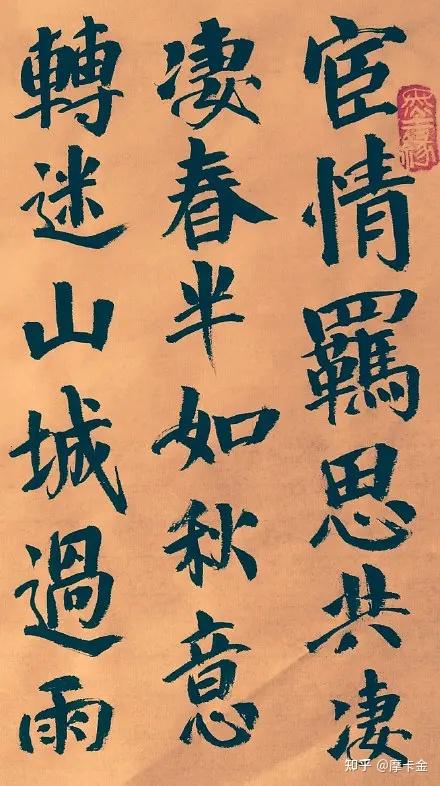 宦情羈思共凄
凄春半如秋意
轉迷山城過雨
知乎 @摩卡金